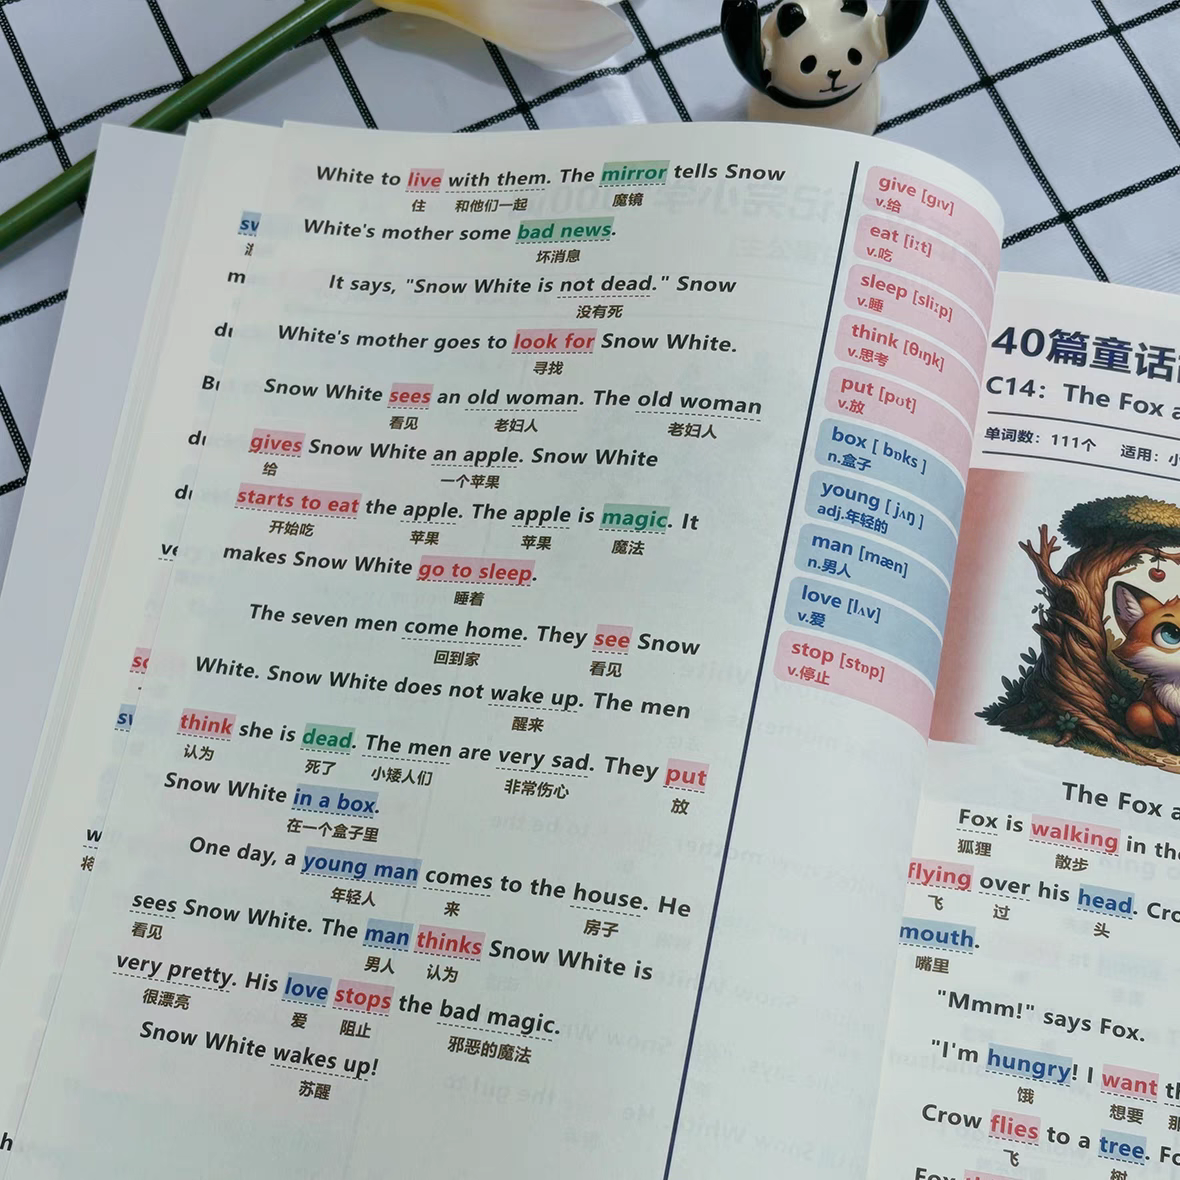 White to live with them. The mirror tells Snow
住 和他们一起 魔镜
White's mother some bad news.
坏消息
It says, "Snow White is not dead." Snow
没有死
White's mother goes to look for Snow White.
寻找
Snow White sees an old woman. The old woman
看见 老妇人 老妇人
gives Snow White an apple. Snow White
给 一个苹果
starts to eat the apple. The apple is magic. It
开始吃 苹果 苹果 魔法
makes Snow White go to sleep.
睡着
The seven men come home. They see Snow
回到家 看见
White. Snow White does not wake up. The men
醒来
think she is dead. The men are very sad. They put
认为 死了 小矮人们 非常伤心 放
Snow White in a box.
在一个盒子里
One day, a young man comes to the house. He
年轻人 来 房子
sees Snow White. The man thinks Snow White is
看见 男人 认为
very pretty. His love stops the bad magic.
很漂亮 爱 阻止 邪恶的魔法
Snow White wakes up!
苏醒
give [gɪv]
v.给
eat [iːt]
v.吃
sleep [sliːp]
v.睡
think [θɪŋk]
v.思考
put [pʊt]
v.放
box [ bɒks ]
n.盒子
young [ jʌŋ ]
adj.年轻的
man [mæn]
n.男人
love [lʌv]
v.爱
stop [stɒp]
v.停止
40篇童话
C14: The Fox
单词数：111个 适用：小
The Fox
Fox is walking in the
狐狸 散步
flying over his head.
飞 过 头
mouth.
嘴里
"Mmm!" says Fox.
"I'm hungry! I want
饿 想要
Crow flies to a tree.
飞 树